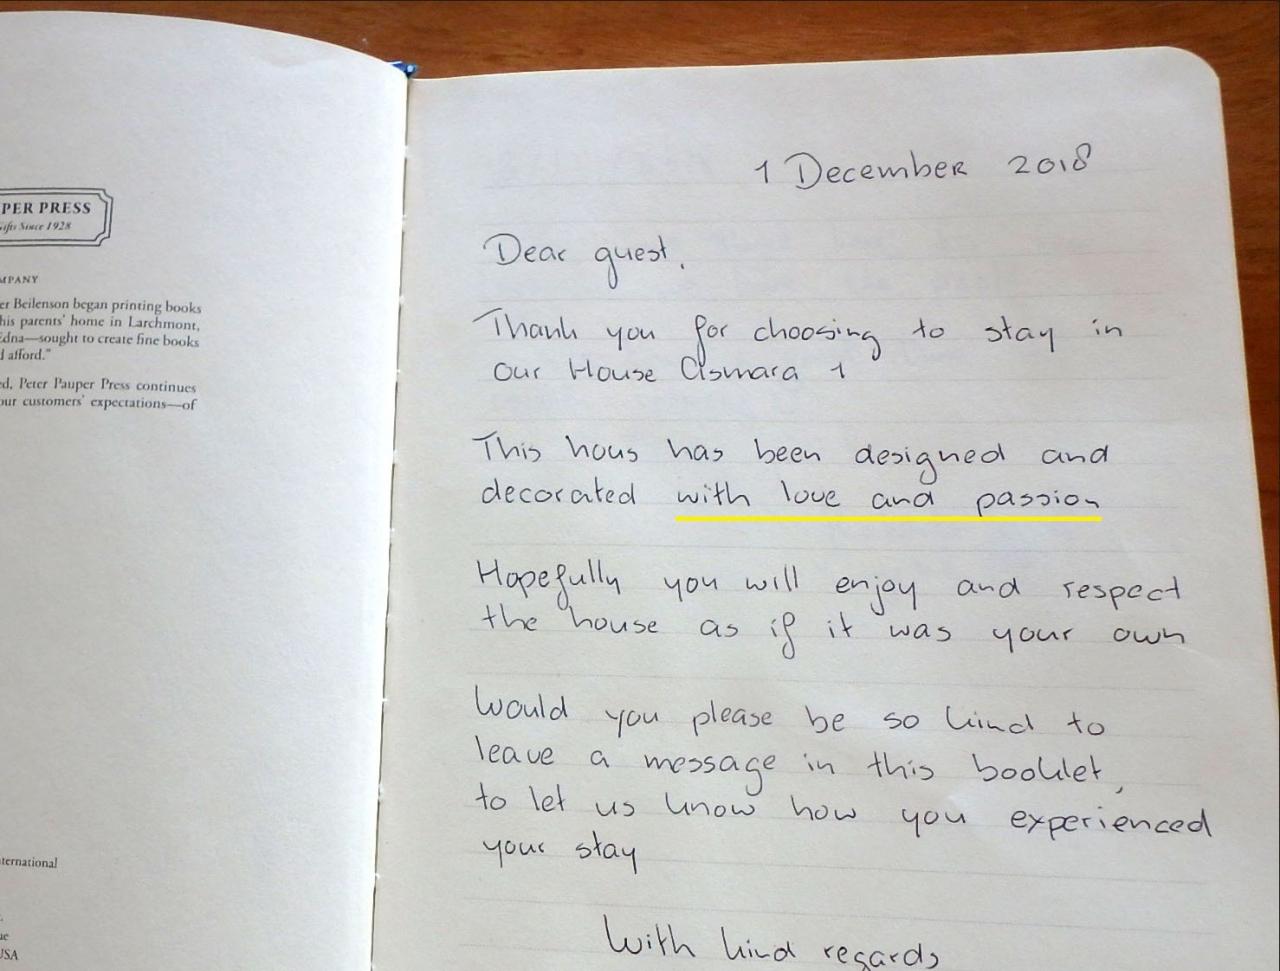 PER PRESS
ifts Since 1928
MPANY
er Beilenson began printing books
his parents' home in Larchmont,
Edna—sought to create fine books
d afford."
ed, Peter Pauper Press continues
our customers' expectations—of
ternational
ue
USA
1 December 2018
Dear guest,
Thank you for choosing to stay in
our House Asmara 1
This hous has been designed and
decorated with love and passion
Hopefully you will enjoy and respect
the house as if it was your own
Would you please be so kind to
leave a message in this booklet,
to let us know how you experienced
your stay
With kind regards